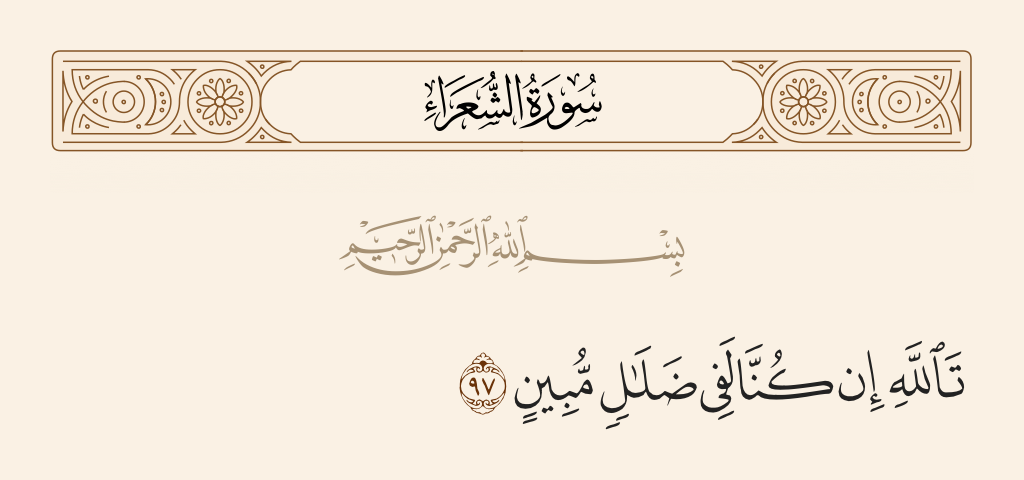 سُورَةُ الشُّعَرَاءِ
بِسْمِ ٱللَّهِ ٱلرَّحْمَٰنِ ٱلرَّحِيمِ
تَٱللَّهِ إِن كُنَّا لَفِى ضَلَـٰلٍ مُّبِينٍ ٩٧